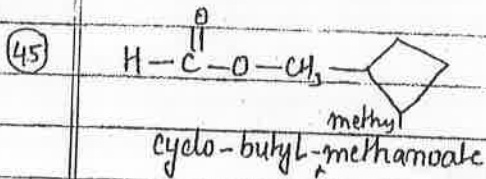 O
45 H-C-O-CH₃-
methyl
cyclo-butyl-methanoate